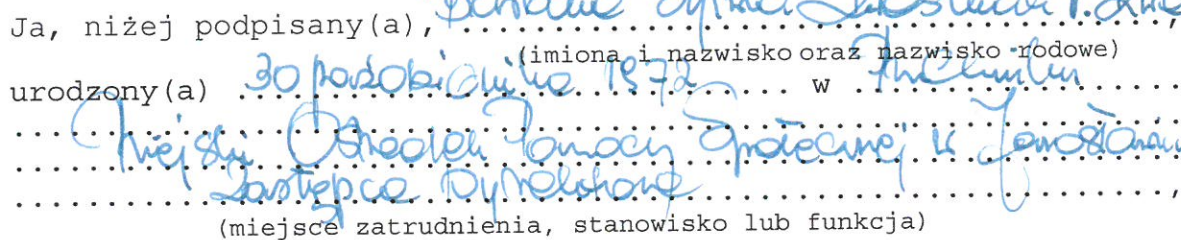 Ja, niżej podpisany(a), ......,
(imiona i nazwisko oraz nazwisko rodowe)
urodzony(a) 30 października 1972 w
Miejski Ośrodek Pomocy Społecznej w Jarosławiu
Zastępca Dyrektora
(miejsce zatrudnienia, stanowisko lub funkcja)